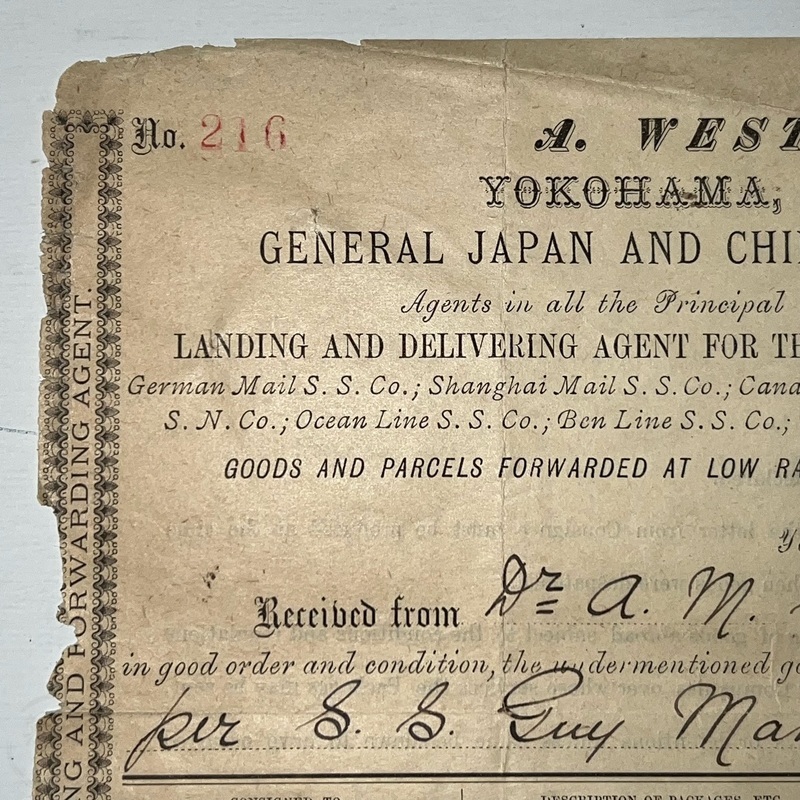 No. 216
A. WEST
YOKOHAMA,
GENERAL JAPAN AND CHI
Agents in all the Principal
LANDING AND DELIVERING AGENT FOR TH
German Mail S. S. Co.; Shanghai Mail S. S. Co.; Cana
S. N. Co.; Ocean Line S. S. Co.; Ben Line S. S. Co.;
GOODS AND PARCELS FORWARDED AT LOW RA
Y
Received from Dr A. M.
in good order and condition, the undermentioned go
per S. S. Guy Man
CONSIGNED TO
DESCRIPTION OF PACKAGES, ETC.
NG AND FORWARDING AGENT.